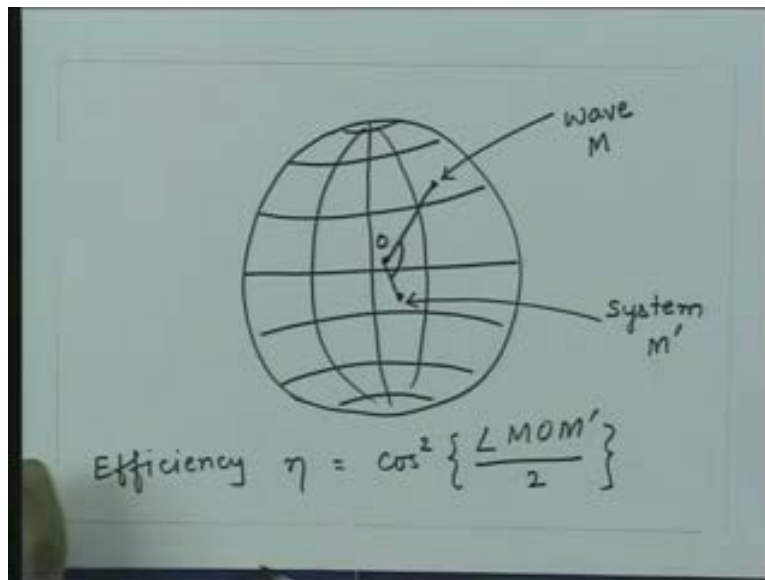 wave
M
O
system
M'
Efficiency η = cos² { ∠MOM' / 2 }